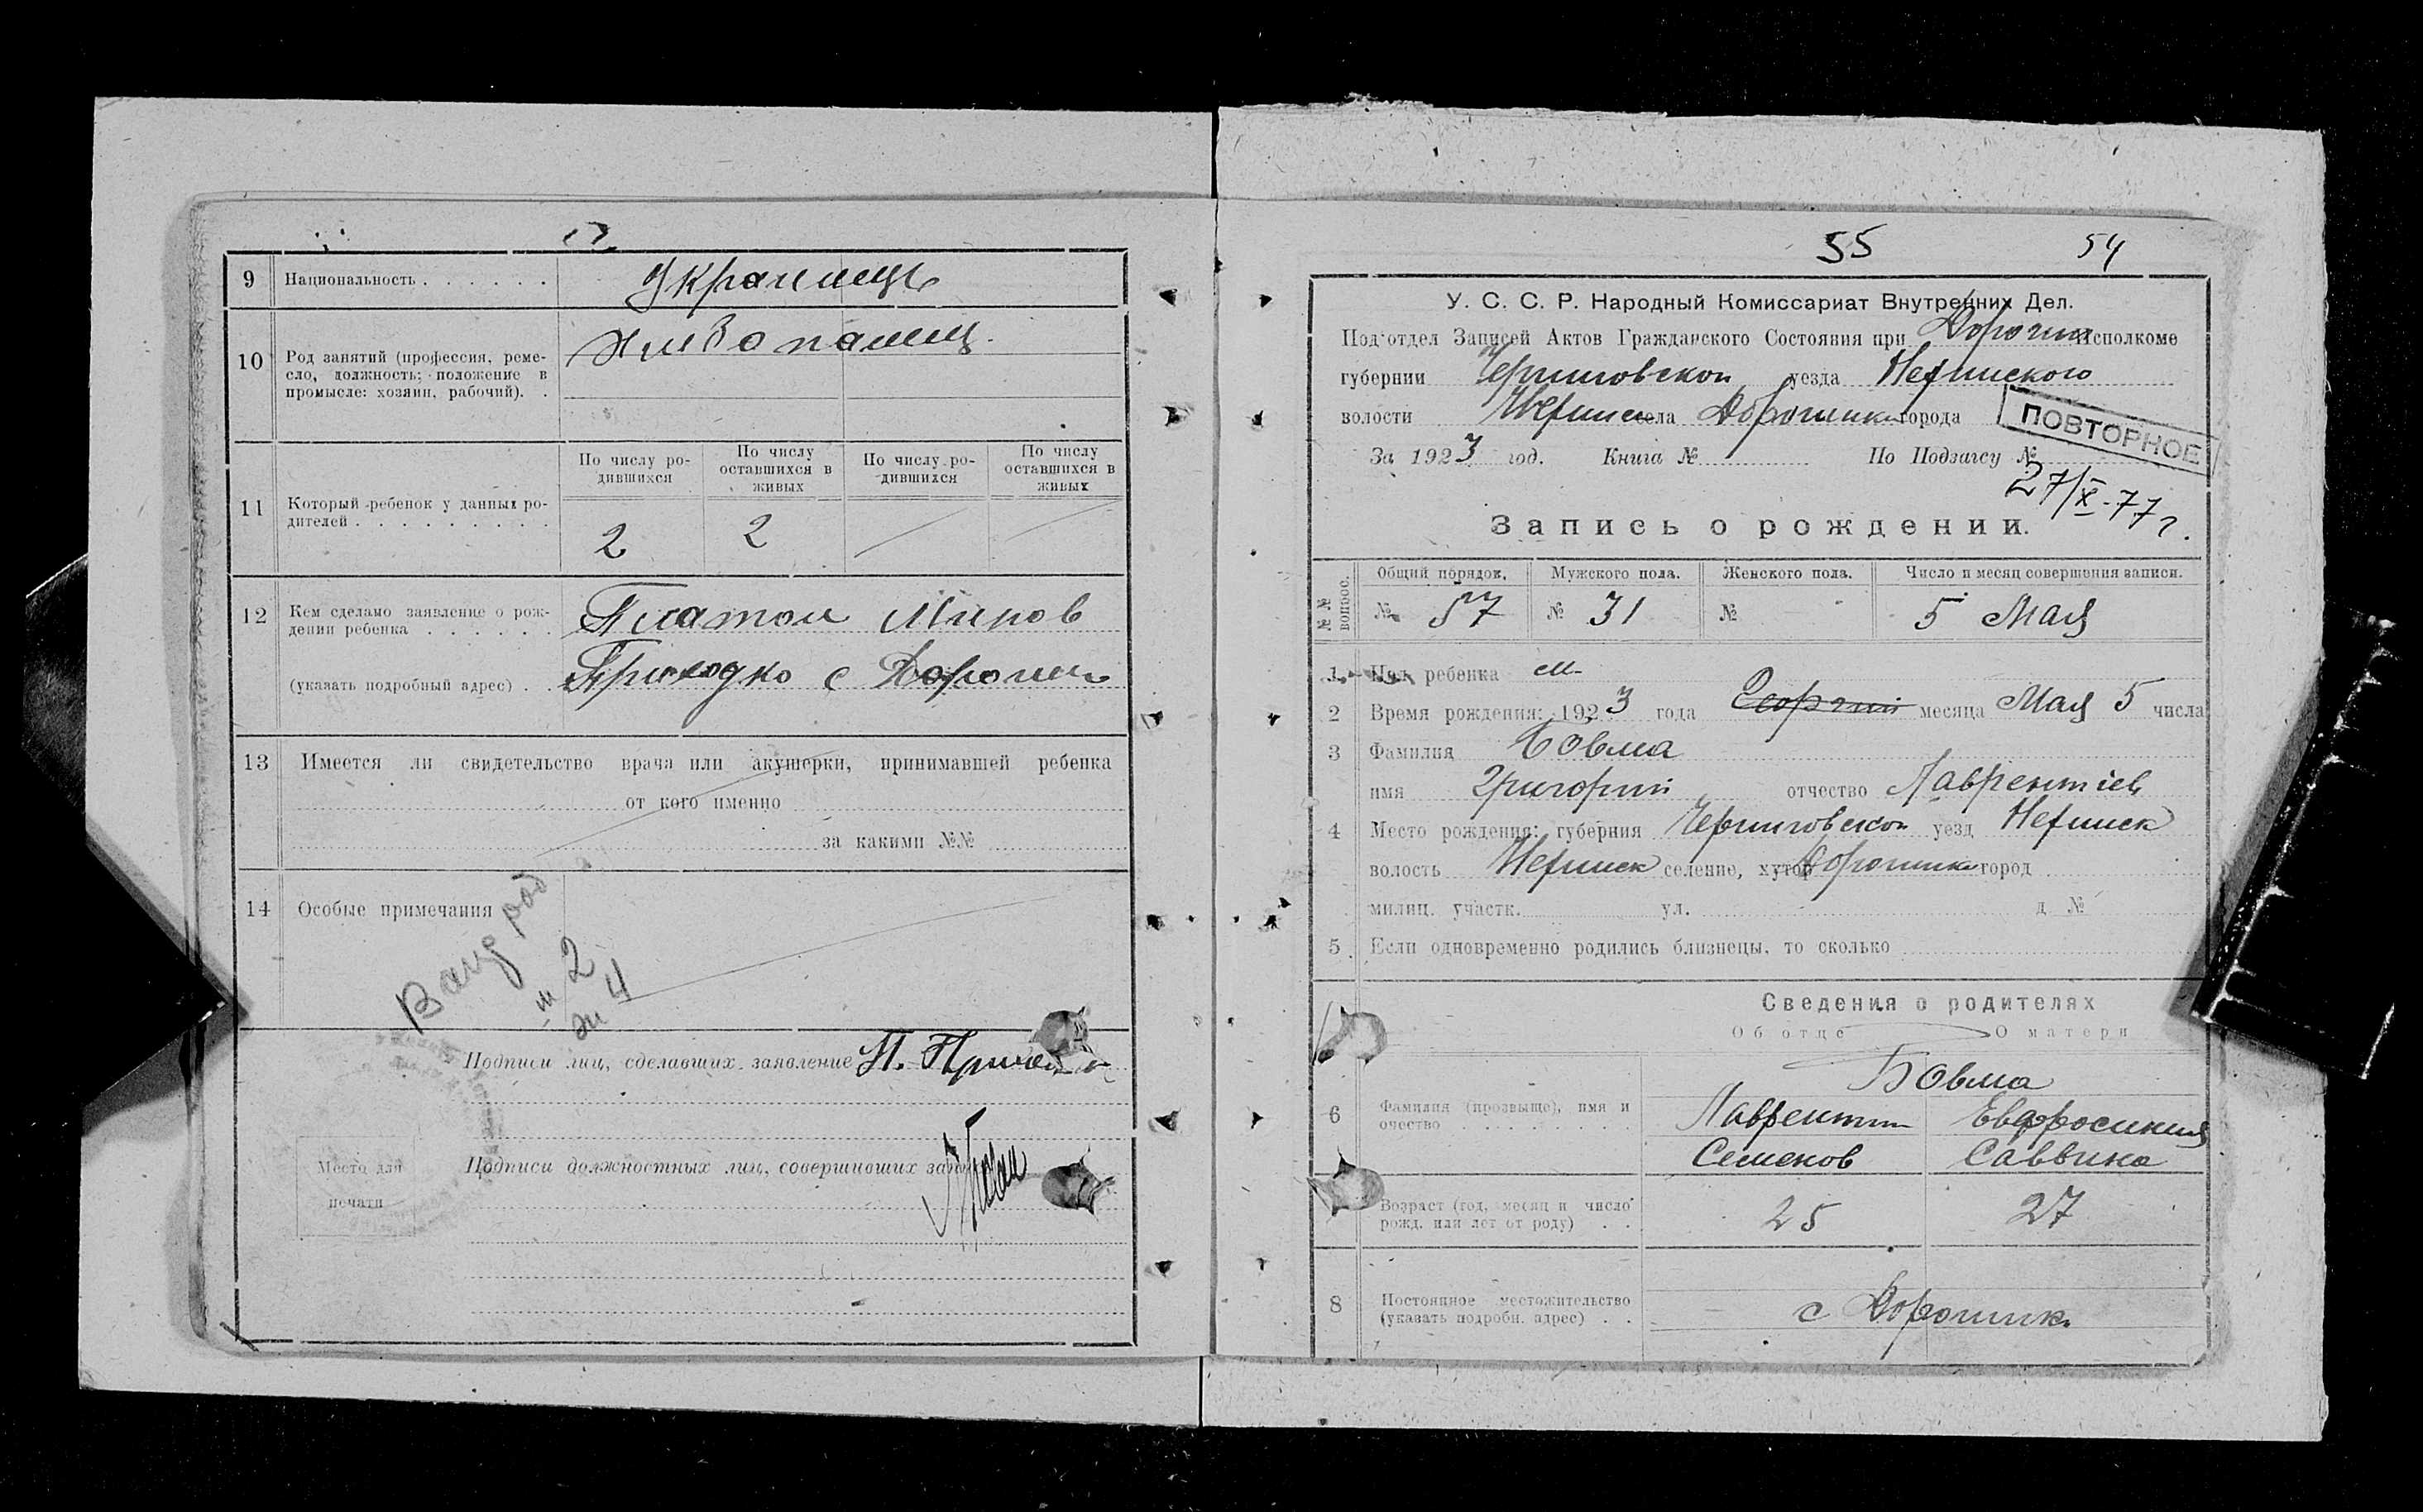 9 Национальность . . . . . . Украинець
10 Род занятий (профессия, реме-
сло, должность; положение в
промысле: хозяин, рабочий). .
Хлибопашец.
11 Который ребенок у данных ро-
дителей . . . . . . . . .
По числу ро-
дившихся
По числу
оставшихся в
живых
По числу ро-
дившихся
По числу
оставшихся в
живых
2 2
12 Кем сделано заявление о рож-
дении ребенка . . . . . .
Платон Минов
(указать подробный адрес) . .
Приходко с
13 Имеется ли свидетельство врача или акушерки, принимавшей ребенка
от кого именно
за какими №№
14 Особые примечания
2
4
Подписи лиц, сделавших заявление П.
Место для
печати
Подписи должностных лиц, совершивших
55 54
У. С. С. Р. Народный Комиссариат Внутренних Дел.
Под'отдел Записей Актов Гражданского Состояния при Исполкоме
губернии Черниговской уезда Нежинского
волости Нежинск села города
ПОВТОРНОЕ
За 1923 год. Книга № По Подзагсу №
27/X-77г.
Запись о рождении.
№№ вопрос.
Общий порядок. Мужского пола. Женского пола. Число и месяц совершения записи.
№ 57 № 31 № 5 Мая
1 Пол ребенка м
2 Время рождения: 1923 года Георгий месяца Мая 5 числа
3 Фамилия Бовма
имя Григорий отчество Лаврентіев
4 Место рождения: губерния Черниговской уезд Нежинск
волость Нежинск селение, хутор город
милиц. участк. ул. д №
5 Если одновременно родились близнецы, то сколько
Сведения о родителях
Об отце О матери
Бовма
6 Фамилия (прозвище), имя и
очество . . . . . . . . .
Лаврентий Евфросиния
Семенов Саввина
Возраст (год, месяц и число
рожд. или лет от роду) . .
25 27
8 Постоянное местожительство
(указать подробн. адрес) . .
с